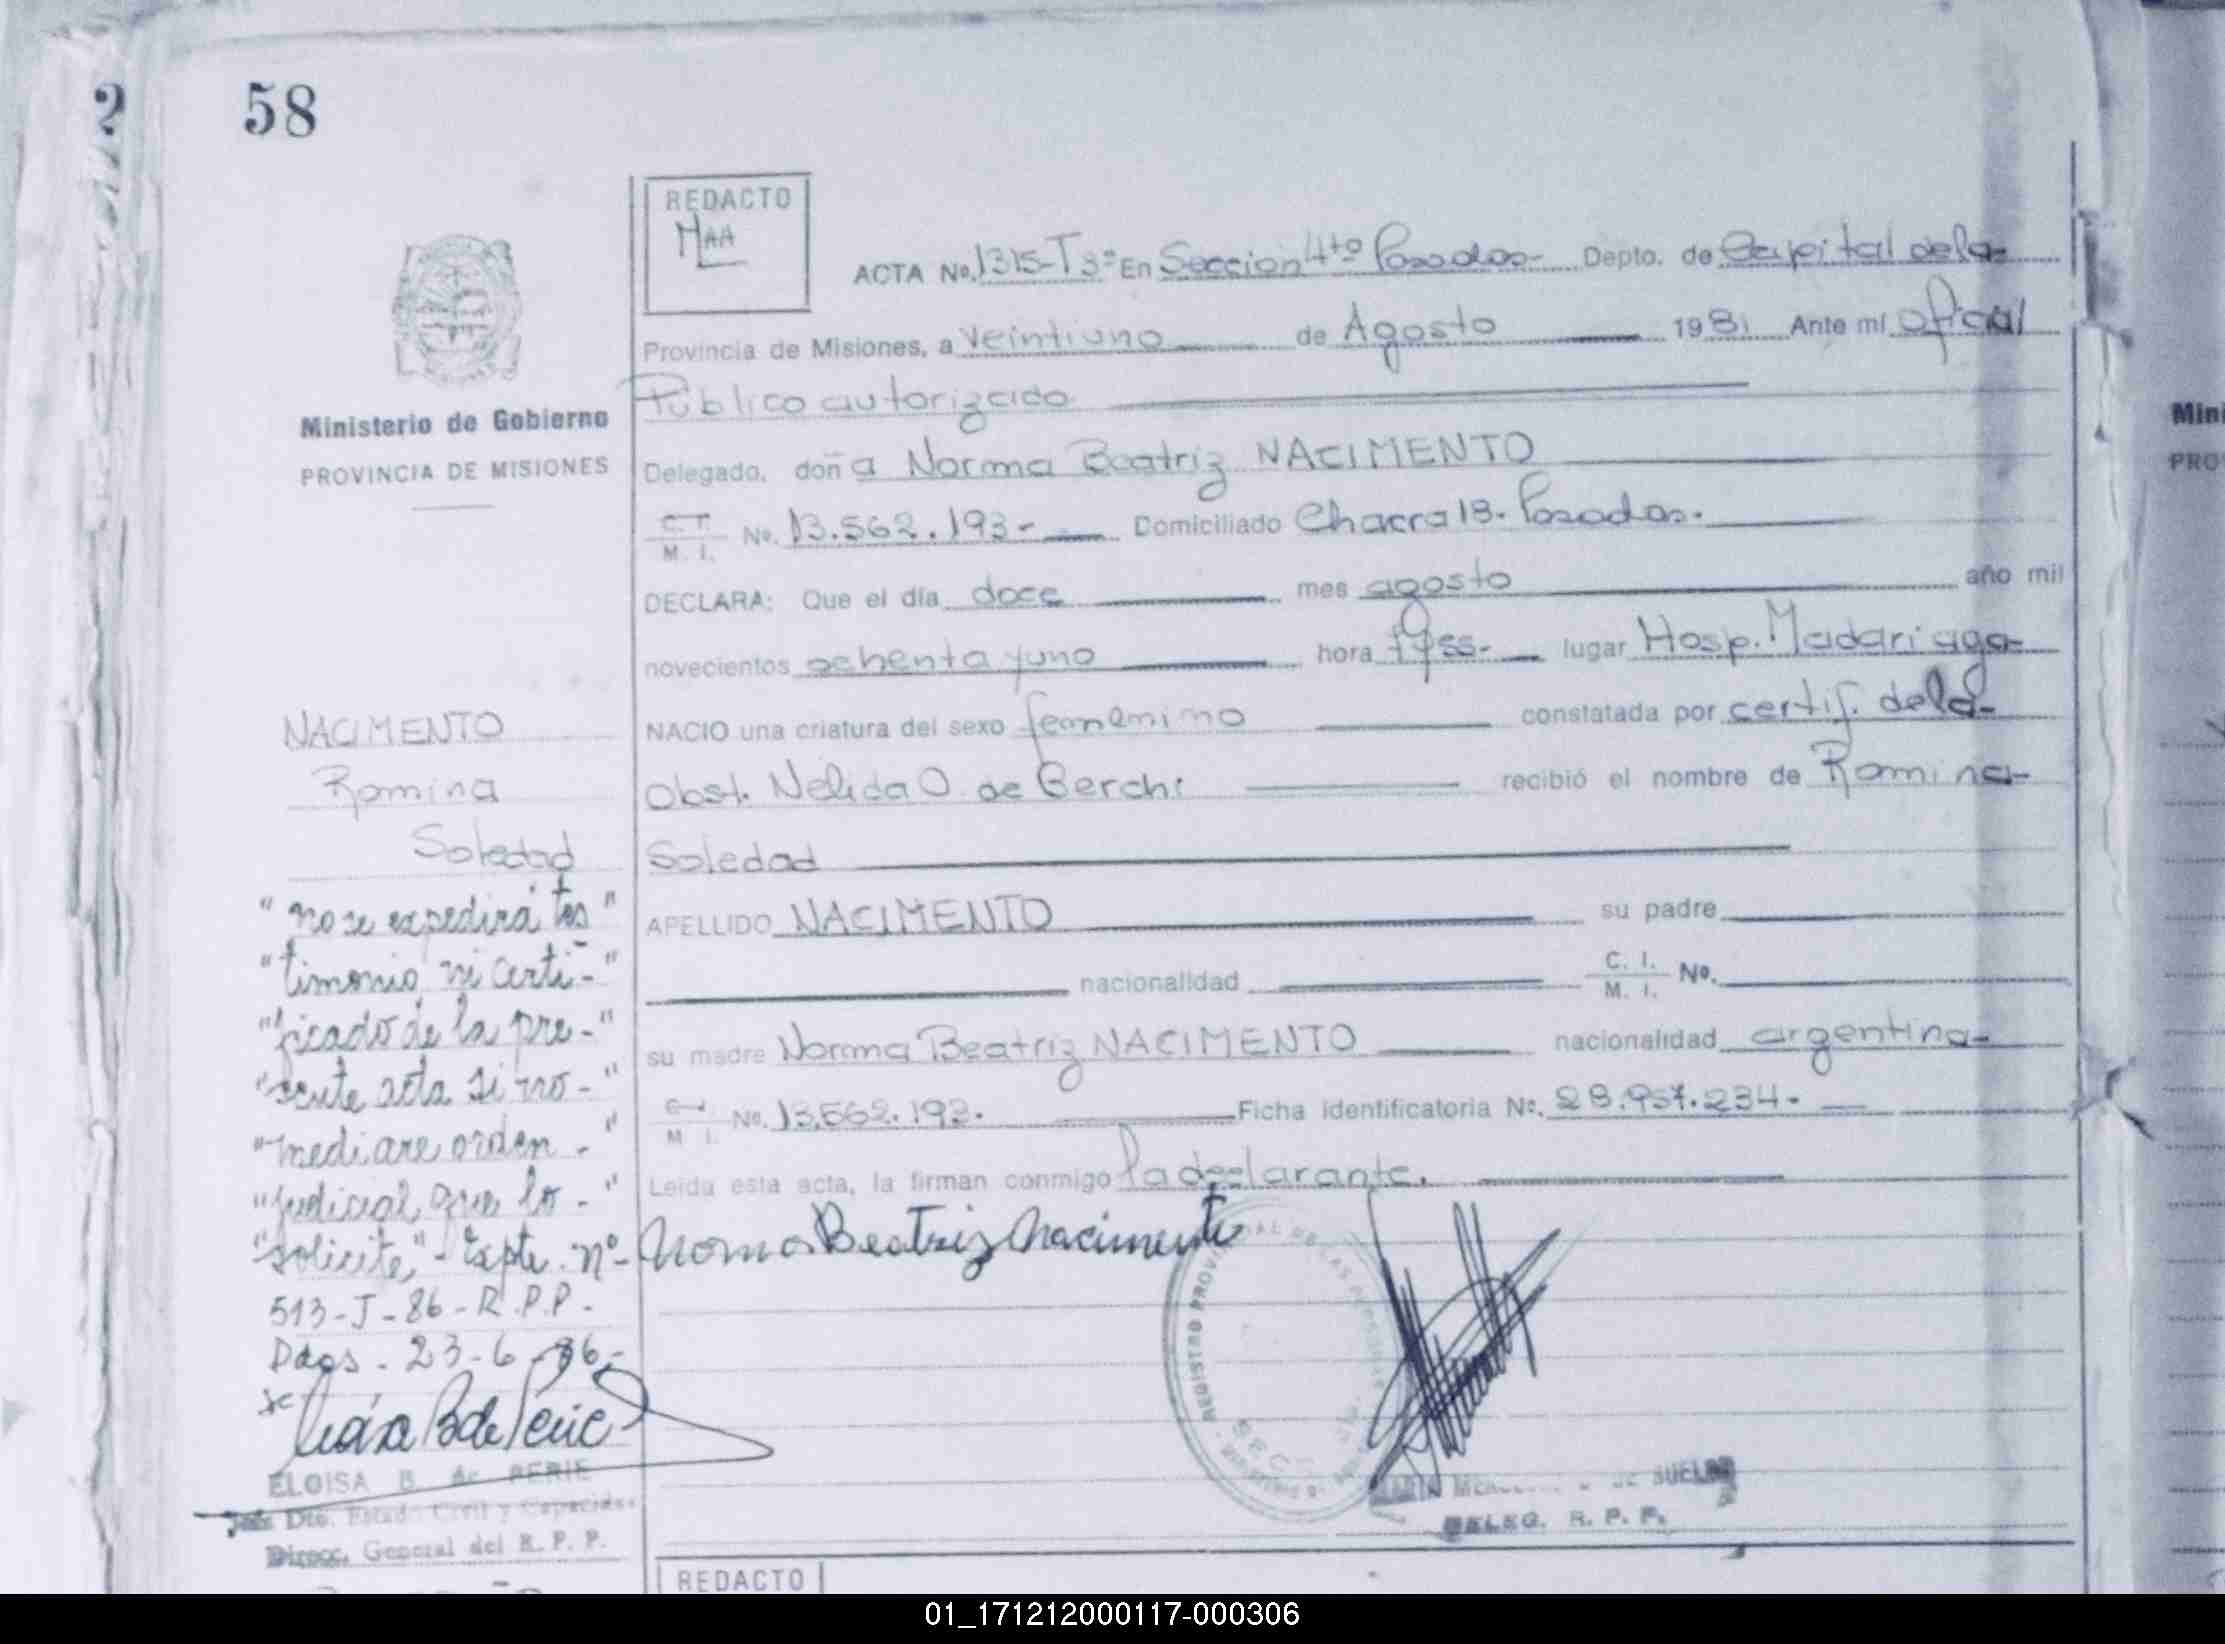 2
58
REDACTO
MAA
ACTA No. 1315-T3º En Sección 4to Posadas- Depto. de Capital de la-
Provincia de Misiones, a veintiuno de Agosto 1981 Ante mí Oficial
Público autorizado
Ministerio de Gobierno
PROVINCIA DE MISIONES
Delegado, doña Norma Beatriz NACIMENTO
M. I. No. 13.562.193- Domiciliado Chacra 18. Posadas.
DECLARA: Que el día doce mes agosto año mil
novecientos ochenta y uno hora lugar Hosp. Madariaga-
NACIMENTO
Romina
Soledad
NACIO una criatura del sexo femenino constatada por certif. de la-
Obst. Nélida O. de Berchi recibió el nombre de Romina-
Soledad
APELLIDO NACIMENTO su padre
nacionalidad C. I. M. I. No.
su madre Norma Beatriz NACIMENTO nacionalidad argentina-
M. I. No. 13.562.193. Ficha identificatoria No. 28.957.234.-
Leída esta acta, la firman conmigo la declarante.
Norma Beatriz Nacimento
"no se expedirá tes"
"timonio ni certi-"
"ficado de la pre-"
"sente acta si no-"
"mediare orden-"
"judicial que lo-"
"solicite"- Expte. nº-
513-J-86-R.P.P.-
Pdas. 23-6-86.-
ELOISA B. de PERIE
Jefa Dto. Estado Civil y Capacidad
Direcc. General del R. P. P.
REGISTRO PROVINCIAL DE LAS PERSONAS
DE SUELDO
DELEG. R. P. P.
REDACTO
Mini
PRO
01_171212000117-000306